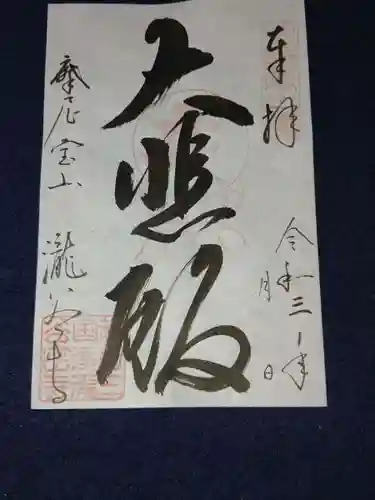 奉拝
令和三年
月　日
大悲殿
摩尼宝山　瀧谷寺